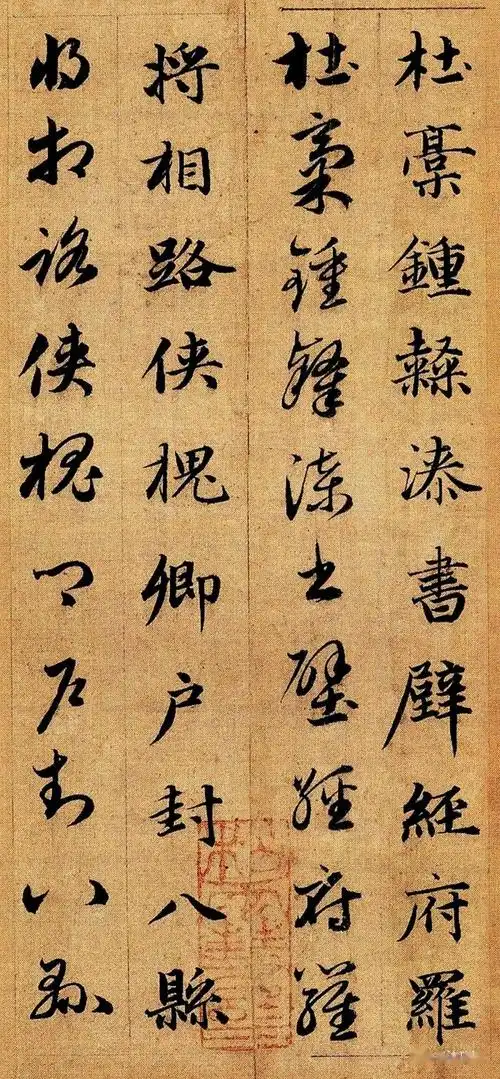 杜稾鍾隸漆書壁經府羅
杜稾鍾隸漆書壁經府羅
將相路俠槐卿户封八縣
將相路俠槐卿户封八縣